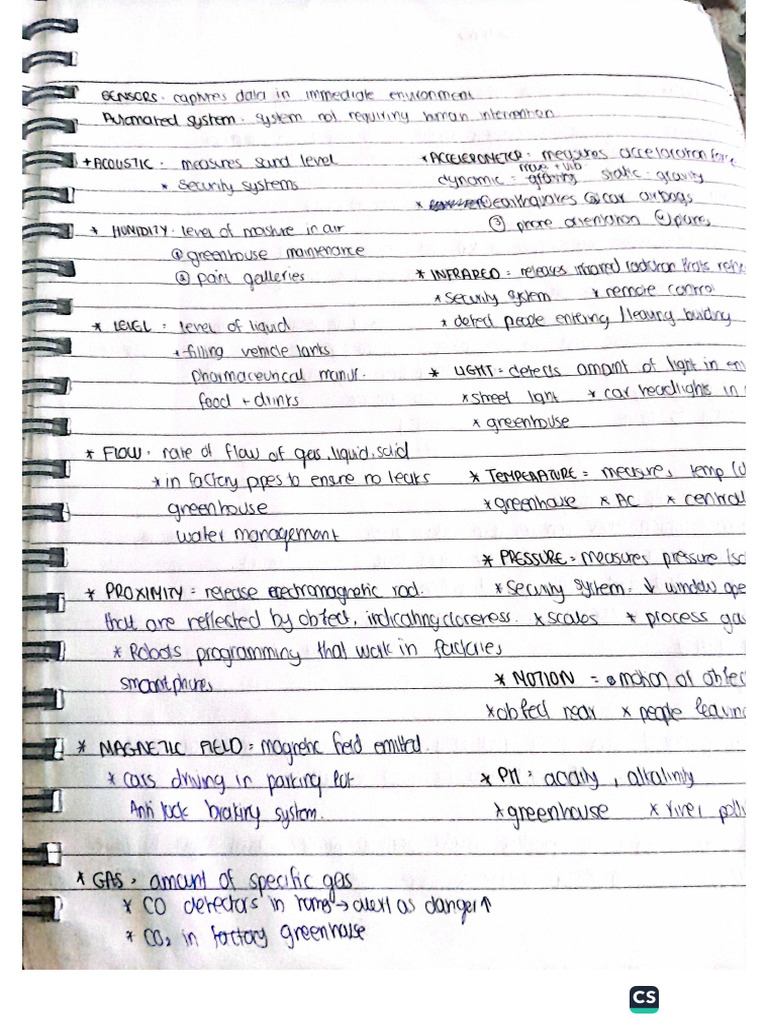 SENSORS. captures data in immediate environment
Automated system. system not requiring human intervention
+ACOUSTIC. measures sound level
* security systems
* HUMIDITY. level of moisture in air
① greenhouse maintenance
② pain galleries
* LEVEL: level of liquid
filling vehicle tanks
pharmaceutical manuf.
food + drinks
* FLOW. rate of flow of gas, liquid, solid
* in factory pipes to ensure no leaks
greenhouse
water management
* PROXIMITY = release electromagnetic rad.
that are reflected by object, indicating closeness.
* Robots programming that walk in factories
smartphones
* MAGNETIC FIELD = magnetic field emitted.
* cars driving in parking lot
Anti lock braking system.
* GAS. amount of specific gas
* CO detectors in homes → alert as danger↑
* CO₂ in factory greenhouse
*ACCELEROMETER. measures acceleration force
move + vib
dynamic = static = gravity
* ① earthquakes ② car airbags
③ phone orientation ④ planes
* INFRARED = releases infrared radiation thats
* security system * remote control
* detect people entering / leaving building
* LIGHT = detects amount of light in
* street light * car headlights in
* greenhouse
* TEMPERATURE = measures temp
* greenhouse * AC * central
* PRESSURE = measures pressure
* security system. ↓ window
* scales * process
* MOTION = motion of
* object near * people
* PH: acidity, alkalinity
* greenhouse * river